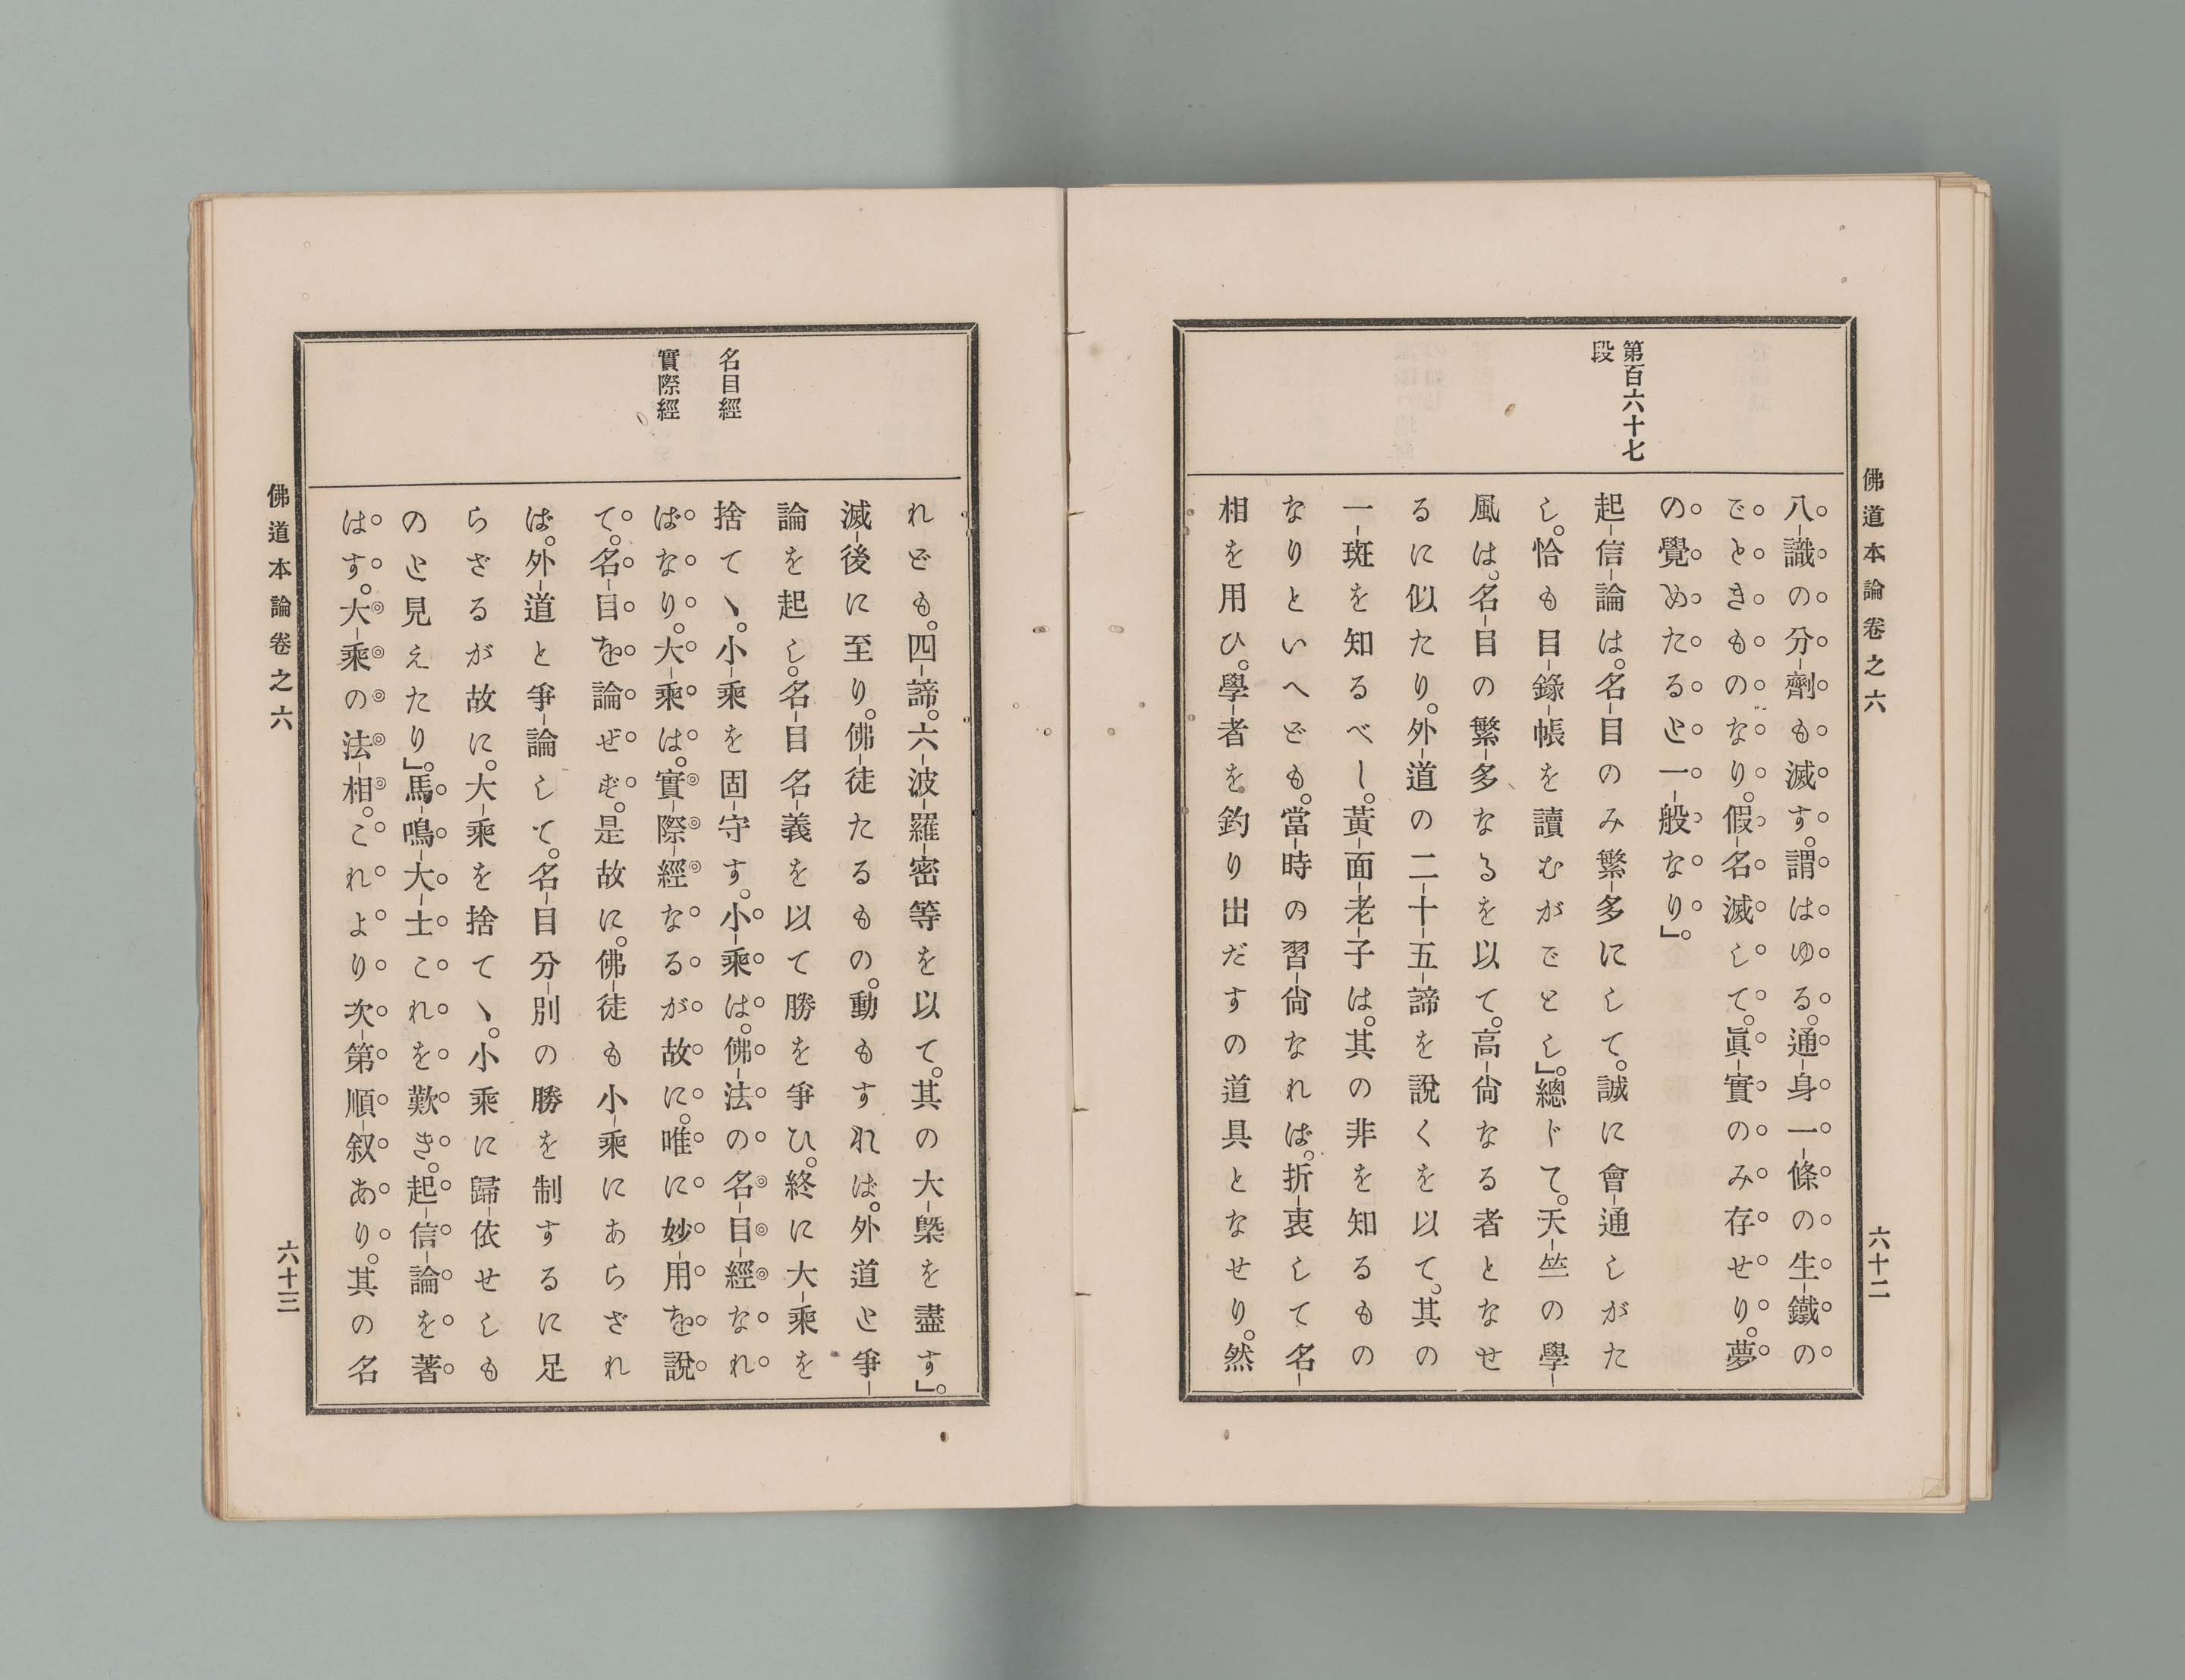 佛道本論卷之六
六十二
第百六十七
段
八識の分劑も滅す。謂はゆる。通身一條の生鐵の
ごときものなり。假名滅して。眞實のみ存せり。夢
の覺めたると一般なり」。
起信論は。名目のみ繁多にして。誠に會通しがた
し。恰も目錄帳を讀むがごとし」。總じて。天竺の學
風は。名目の繁多なるを以て。高尙なる者となせ
るに似たり。外道の二十五諦を說くを以て。其の
一斑を知るべし。黃面老子は。其の非を知るもの
なりといへども。當時の習尙なれば。折衷して名
相を用ひ。學者を釣り出だすの道具となせり。然
れども。四諦。六波羅密等を以て。其の大槩を盡す」。
滅後に至り。佛徒たるもの。動もすれば。外道と爭
論を起し。名目名義を以て勝を爭ひ。終に大乘を
捨てヽ。小乘を固守す。小乘は。佛法の名目經なれ
ばなり。大乘は。實際經なるが故に。唯に妙用を說
て。名目を論ぜず。是故に。佛徒も小乘にあらざれ
ば。外道と爭論して。名目分別の勝を制するに足
らざるが故に。大乘を捨てヽ。小乘に歸依せしも
のと見えたり」。馬鳴大士これを歎き。起信論を著
はす。大乘の法相。これより次第順叙あり。其の名
名目經
實際經
佛道本論卷之六
六十三